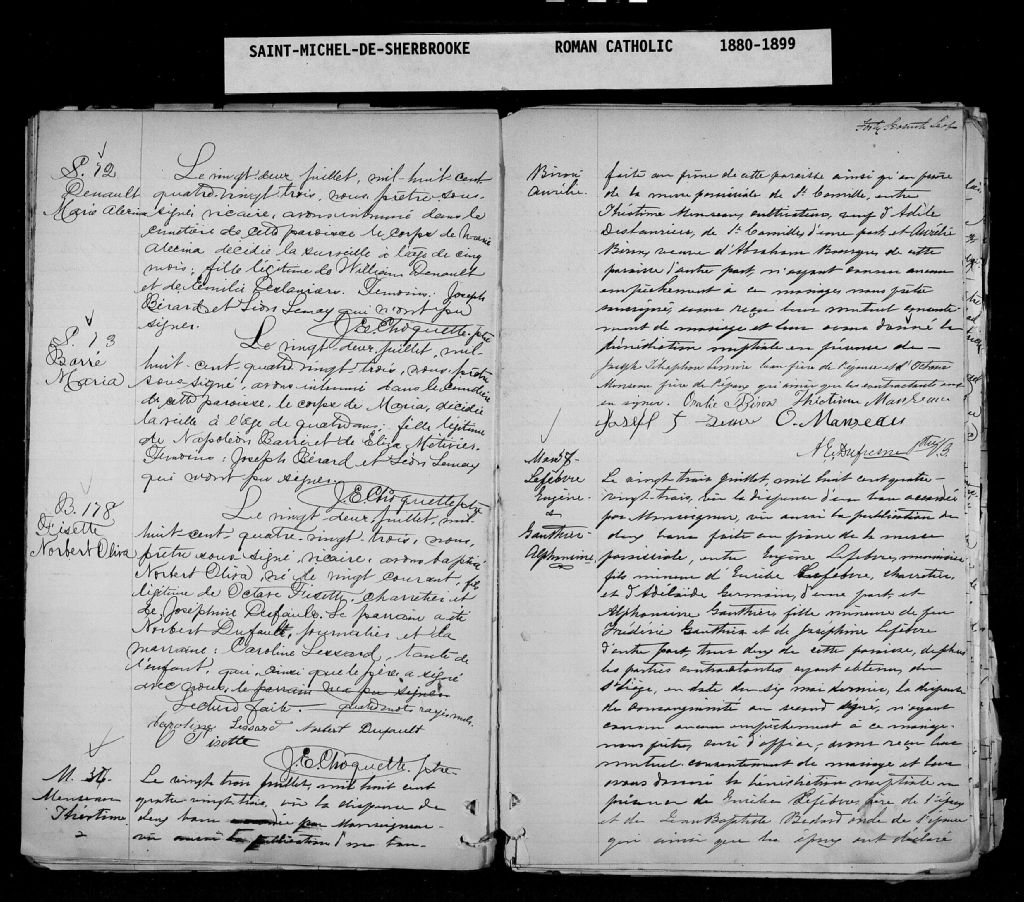 SAINT-MICHEL-DE-SHERBROOKE ROMAN CATHOLIC 1880-1899
S. 72
Denault
Marie Alexina
Le vingt deux juillet, mil-huit-cent
quatre-vingt trois, nous, prêtre sous-
signé, vicaire, avons inhumé dans le
cimetière de cette paroisse le corps de Marie
décédée la surveille à l'âge de cinq
mois; fille légitime de William Denault
et de Témoins: Joseph
Bérard et Léon Lemay qui n'ont pu
signer.
J.E. Choquette ptre
S. 73
Barré
Maria
Le vingt deux juillet, mil-
huit-cent-quatre vingt trois, nous, prêtre
sous-signé, avons inhumé dans le cimetière
de cette paroisse, le corps de Maria, décédée
la veille à l'âge de quatre ans; fille légitime
de Napoléon Barré et de Eliza Métivier.
Témoins: Joseph Bérard et Léon Lemay
qui n'ont pu signer.
J.E. Choquette ptre
B. 178
Fisette
Norbert Oliva
Le vingt deux juillet, mil-
huit-cent-quatre-vingt-trois, nous,
prêtre sous-signé, vicaire, avons baptisé
Norbert Oliva, né le vingt courant, fils
légitime de Octave Fisette, charretier et
de Joséphine Dufault. Le parrain a été
Norbert Dufault, journalier et la
marraine: Caroline Lessard, tante de
l'enfant, qui, ainsi que le père, a signé
avec nous, le parrain n'a pu signer
Lecture faite. - quatre mots rayés nuls.
Caroline Lessard Norbert Dufault
Fisette
J.E. Choquette, ptre
M. 34
Manseau
Théotime
&
Le vingt trois juillet, mil huit cent
quatre vingt trois, vu la dispense de
deux bans par Monseigneur
vu aussi la publication d'un ban
Biron
Aurélie
faite au prône de cette paroisse ainsi qu'au prône
de la messe paroissiale de St. Camille, entre
Théotime Manseau cultivateur, veuf d'Adèle
de St. Camille d'une part, et Aurélie
Biron, veuve d'Abraham Bourque de cette
paroisse d'autre part, n'ayant connu aucun
empêchement à ce mariage nous prêtre
soussigné, avons reçu leur mutuel consente-
ment de mariage et leur avons donné la
bénédiction nuptiale en présence de
Joseph frère de l'épouse et d'Octave
Manseau frère de l'époux qui ainsi que les contractants ont
su signer. Biron Théotime Manseau
O. Manseau
A.E. Dufresne ptre
Lefebvre
Eugène
&
Gauthier
Alphonsine
Le vingt trois juillet, mil huit cent quatre-
vingt-trois, vu la dispense d'un ban accordée
par Monseigneur, vu aussi la publication de
deux bans faite au prône de la messe
paroissiale, entre Eugène Lefebvre,
fils mineur d' Lefebvre, charretier
et d'Adélaïde Germain, d'une part, et
Alphonsine Gauthier, fille mineure de feu
Frédéric Gauthier et de Joséphine Lefebvre
d'autre part, tous deux de cette paroisse, de plus
les parties contractantes ayant obtenu du
St Siège, en date du six mai dernier, la dispense
de consanguinité au second degré, n'ayant
connu aucun empêchement à ce mariage
nous prêtre, curé d'office, avons reçu leur
mutuel consentement de mariage et leur
avons donné la bénédiction nuptiale en
présence de Lefebvre père de l'époux
et de Jean Baptiste Bedard oncle de l'épouse
qui ainsi que les époux ont déclaré